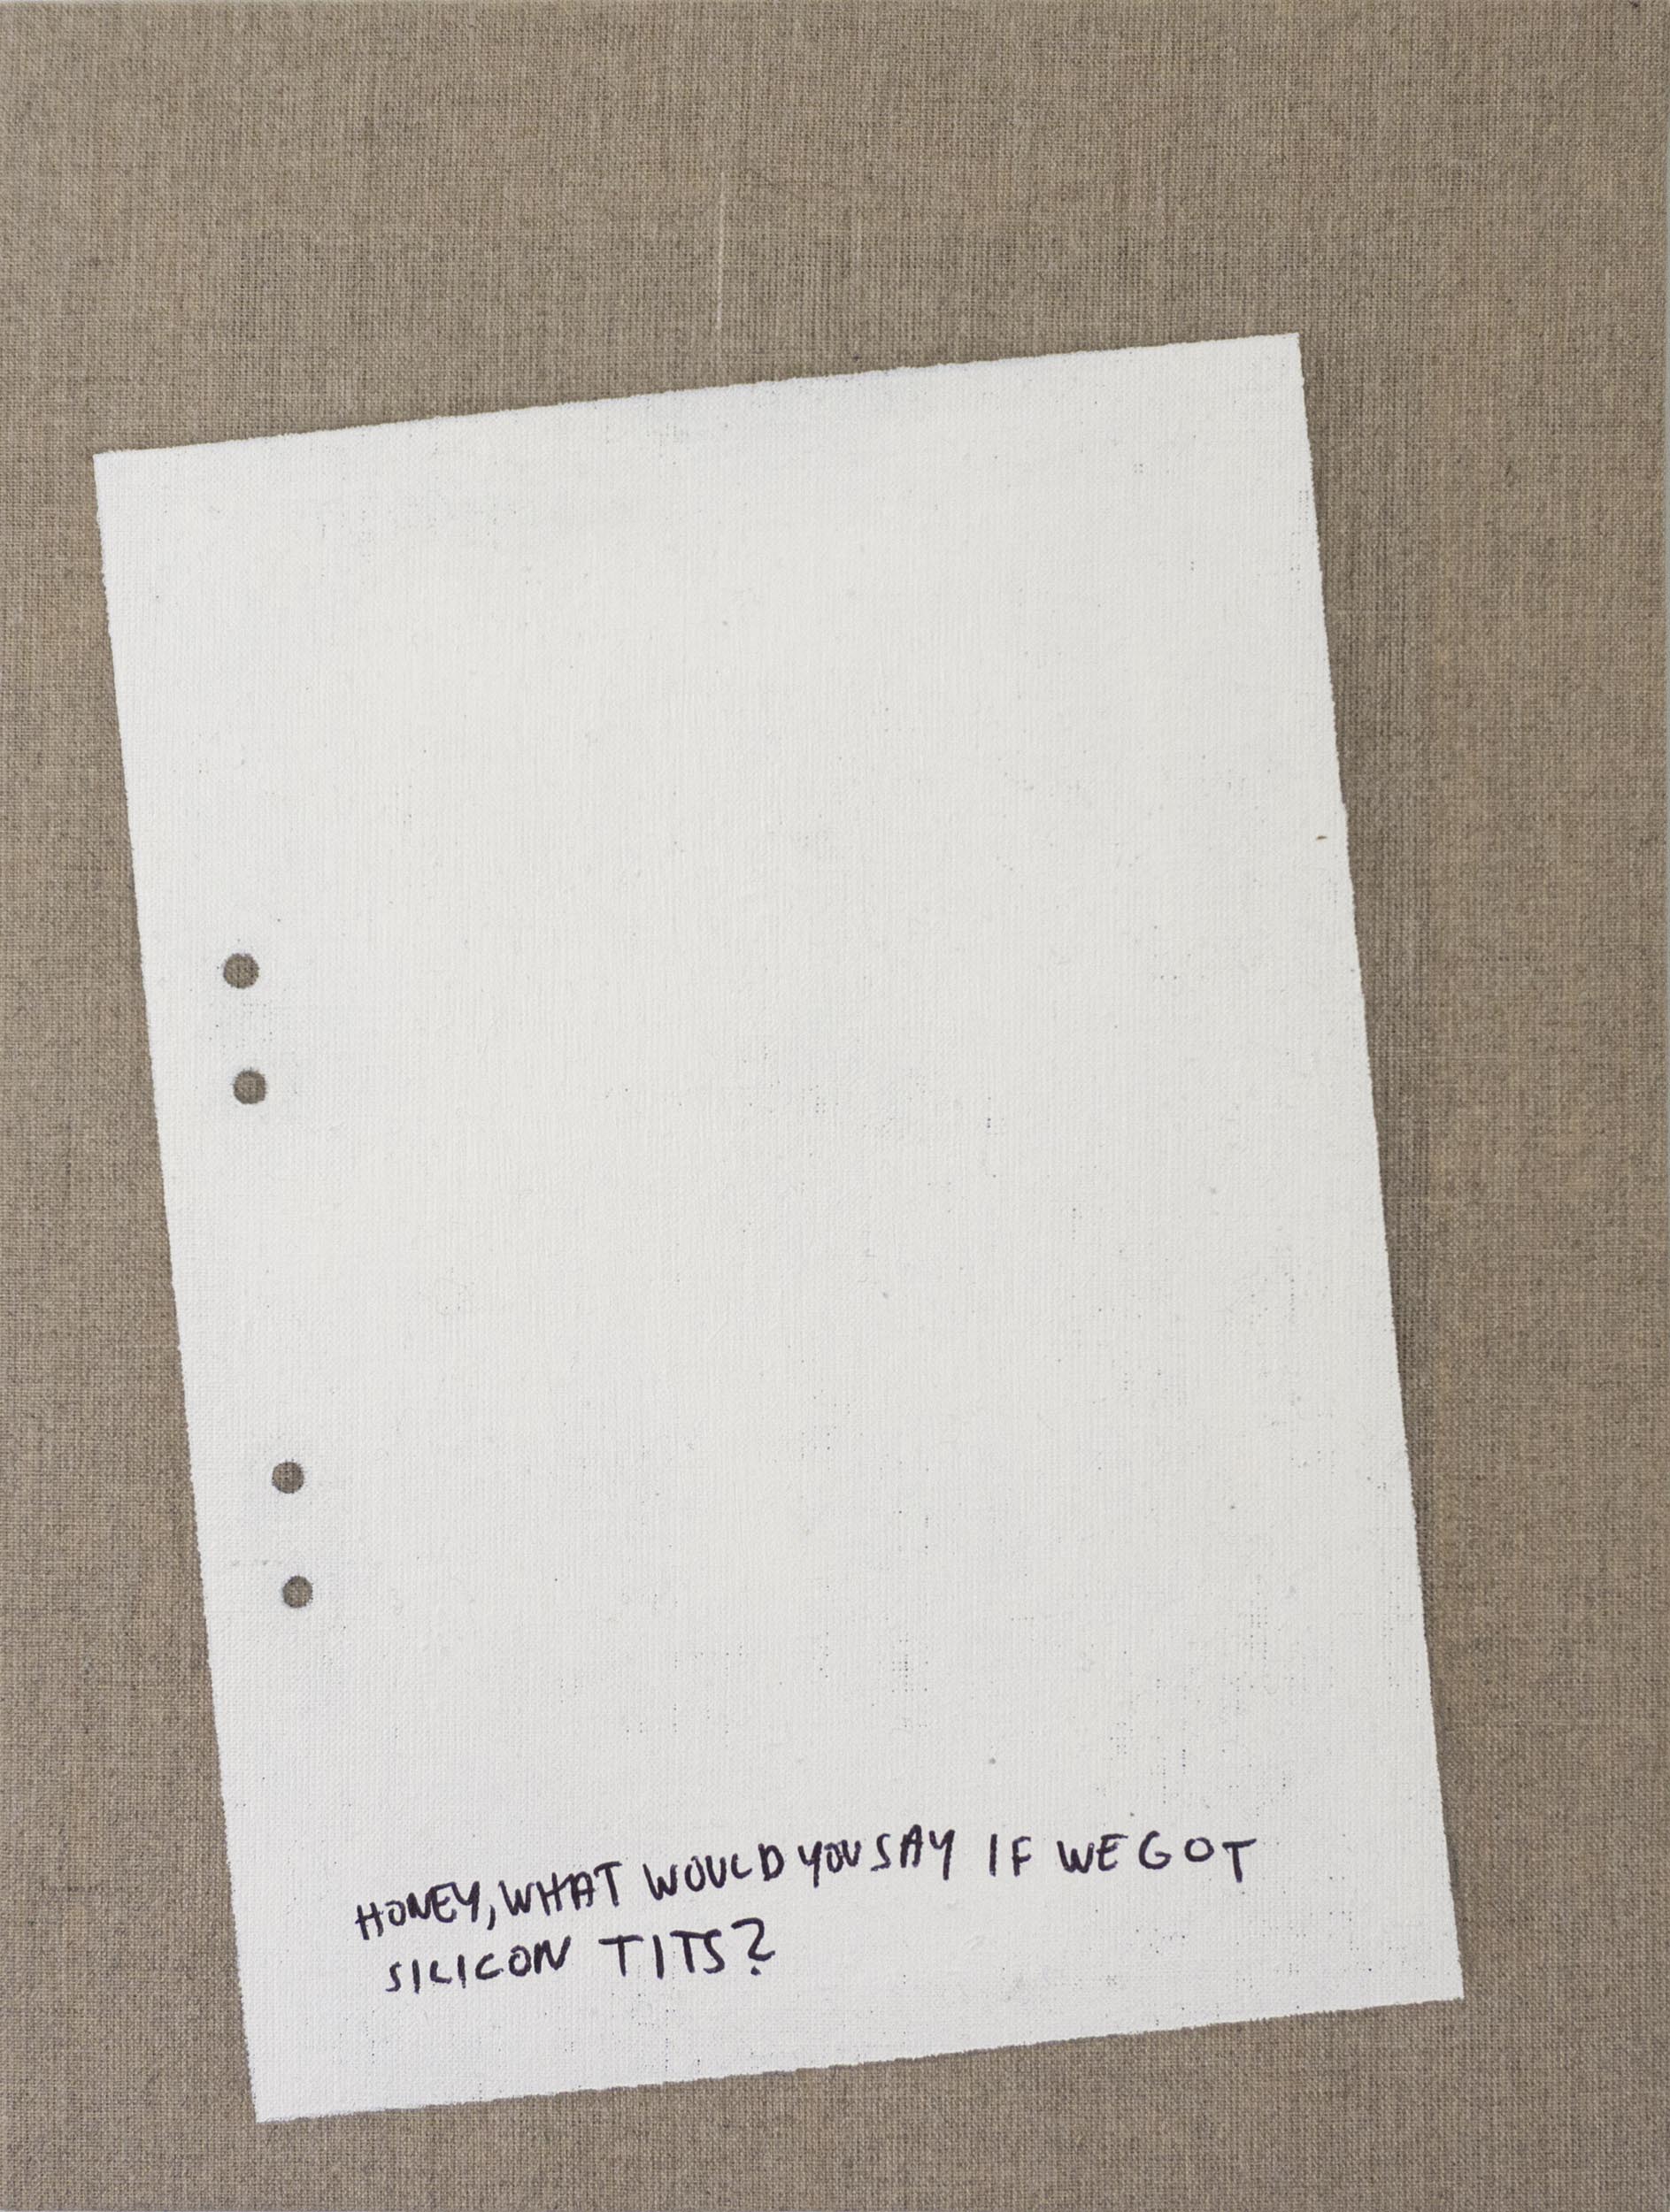 HONEY, WHAT WOULD YOU SAY IF WE GOT
SILICON TITS?